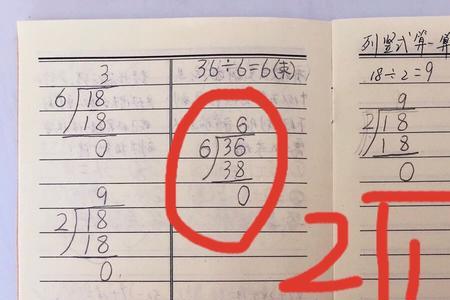 3
6 18
18
0
9
2 18
18
0
36÷6=6(束)
6
6 36
38
0
列竖式算一算
18÷2=9
9
2 18
18
0
2